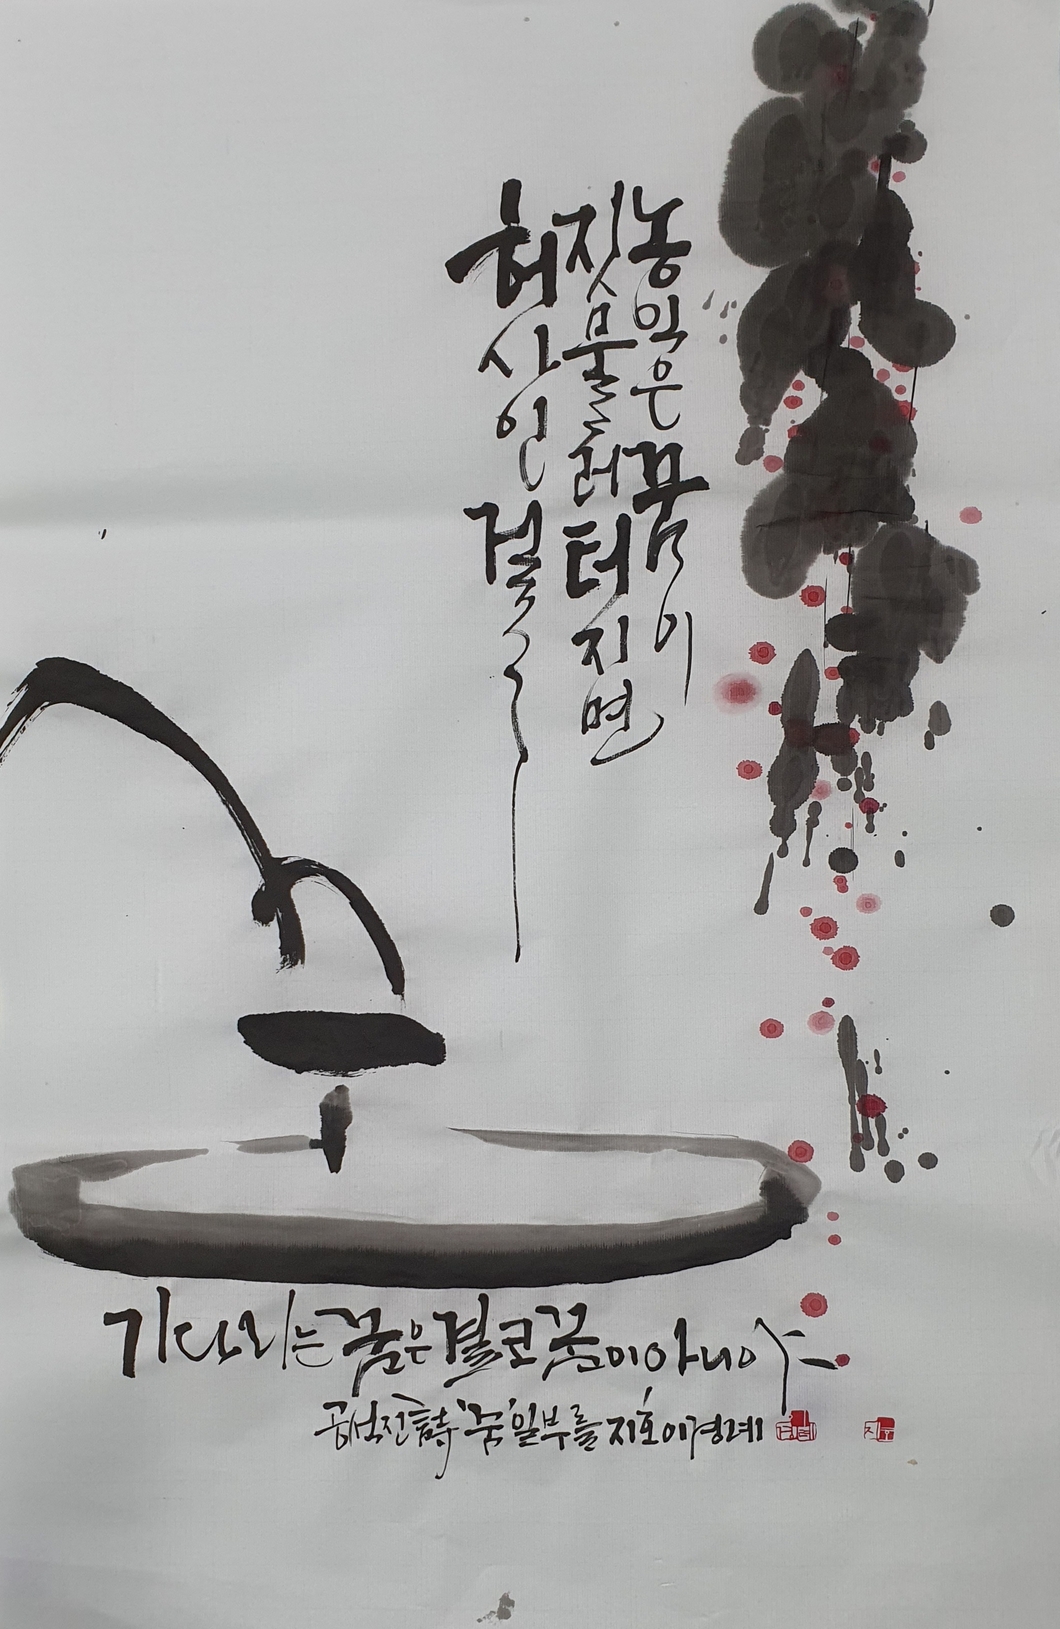 농익은 꿈이
짓물러 터지면
허사인 걸
기다리는 꿈은 결코 꿈이 아니야
공석진 詩 '꿈' 일부를 지호 이경례